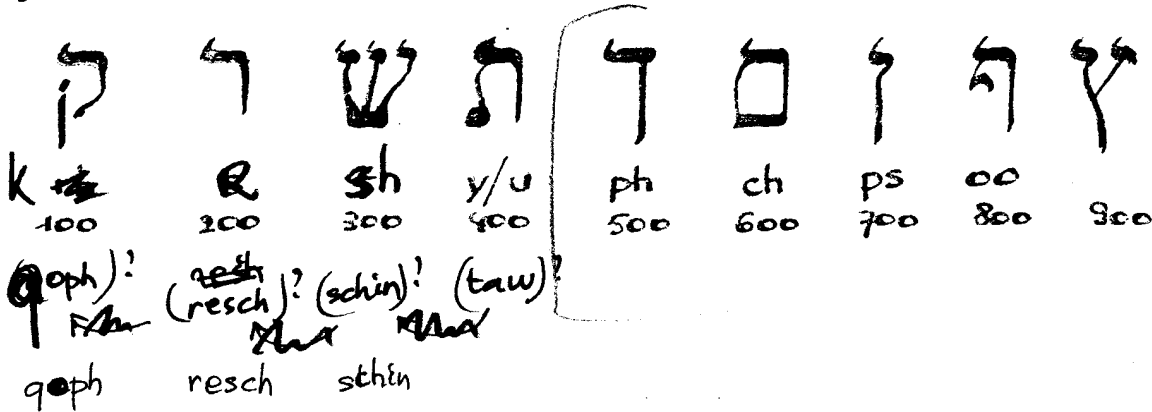 ק ר ש ת ך ם ן ף ץ
k R sh y/u ph ch ps oo
100 200 300 400 500 600 700 800 900
(qoph)? (resch)? (schin)? (taw)?
qoph resch sthin